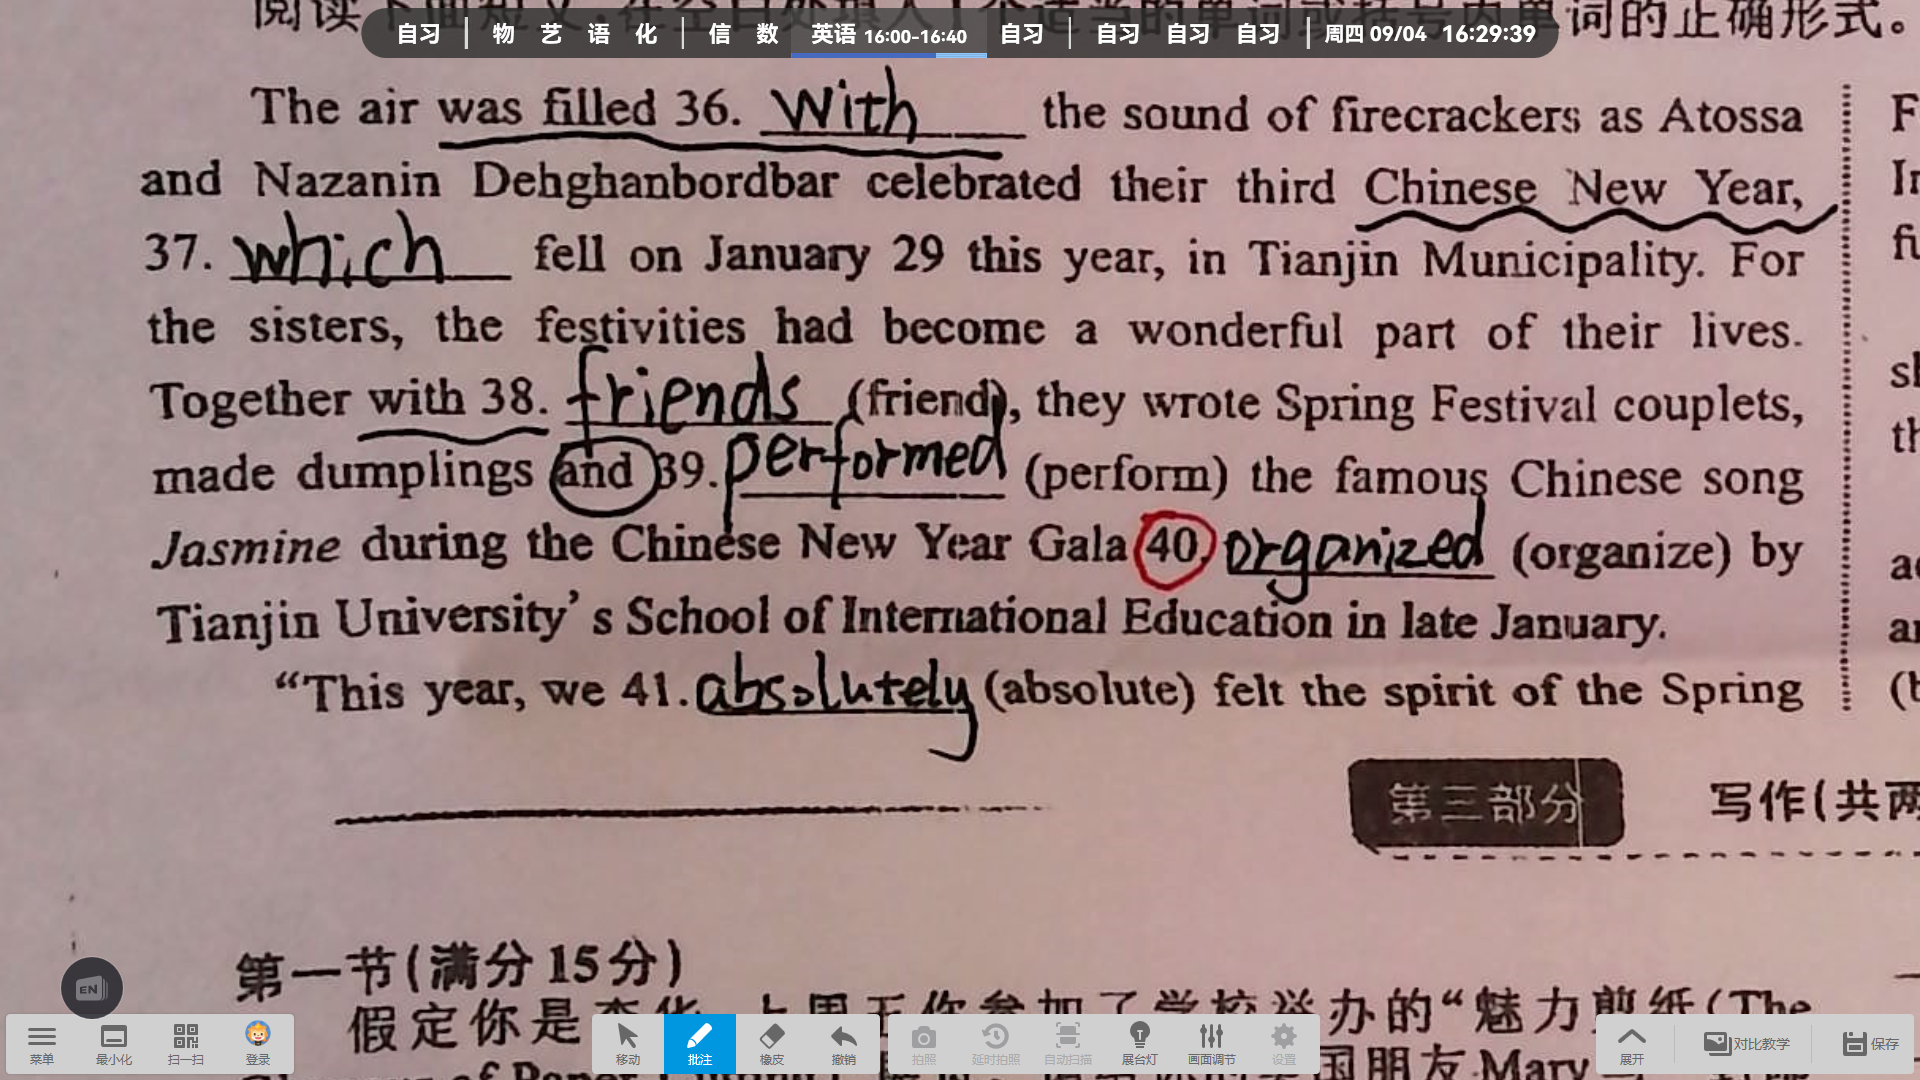 词的正确形式。
自习 | 物 艺 语 化 | 信 数 英语 16:00-16:40 自习 | 自习 自习 自习 | 周四 09/04 16:29:39
The air was filled 36. With the sound of firecrackers as Atossa
and Nazanin Dehghanbordbar celebrated their third Chinese New Year,
37. which fell on January 29 this year, in Tianjin Municipality. For
the sisters, the festivities had become a wonderful part of their lives.
Together with 38. friends (friend), they wrote Spring Festival couplets,
made dumplings and 39. performed (perform) the famous Chinese song
Jasmine during the Chinese New Year Gala 40. organized (organize) by
Tianjin University's School of International Education in late January.
“This year, we 41. absolutely (absolute) felt the spirit of the Spring
第三部分 写作(共两
第一节(满分15分)
假定你是李华,上周五你参加了学校举办的“魅力剪纸(The
国朋友Mary
EN
菜单 最小化 扫一扫 登录 移动 批注 橡皮 撤销 拍照 延时拍照 自动扫描 展台灯 画面调节 设置 展开 对比教学 保存